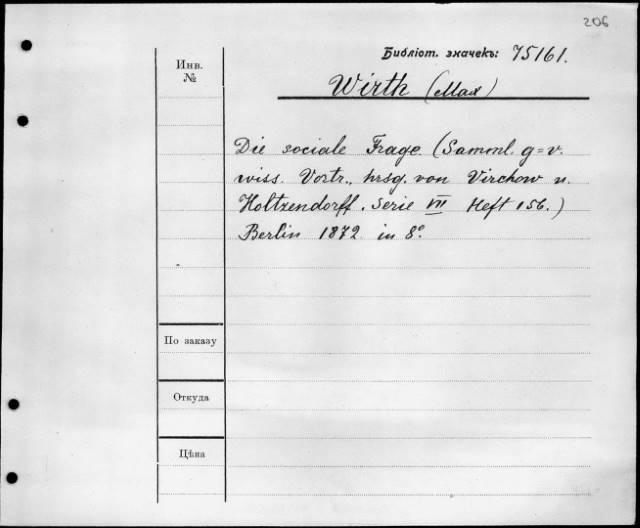 206
Библіот. значекъ: 75161.
Инв.
№
Wirth (Max)
Die sociale Frage. (Samml. g=v.
wiss. Vortr., hrsg. von Virchow u.
Holtzendorff. Serie VII Heft 156.)
Berlin 1872 in 8º.
По заказу
Откуда
Цѣна